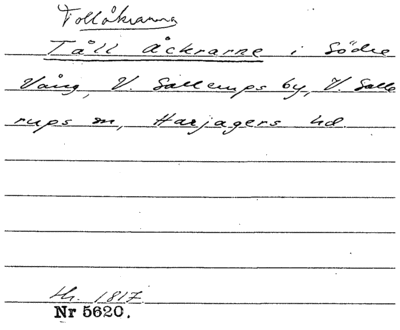 Tollåkrarna
Tåll Åckrarne i Södre
Vång, V. Sallerups by, V. Salle
rups sn, Harjagers hd.
Hr. 1817
Nr 5620.